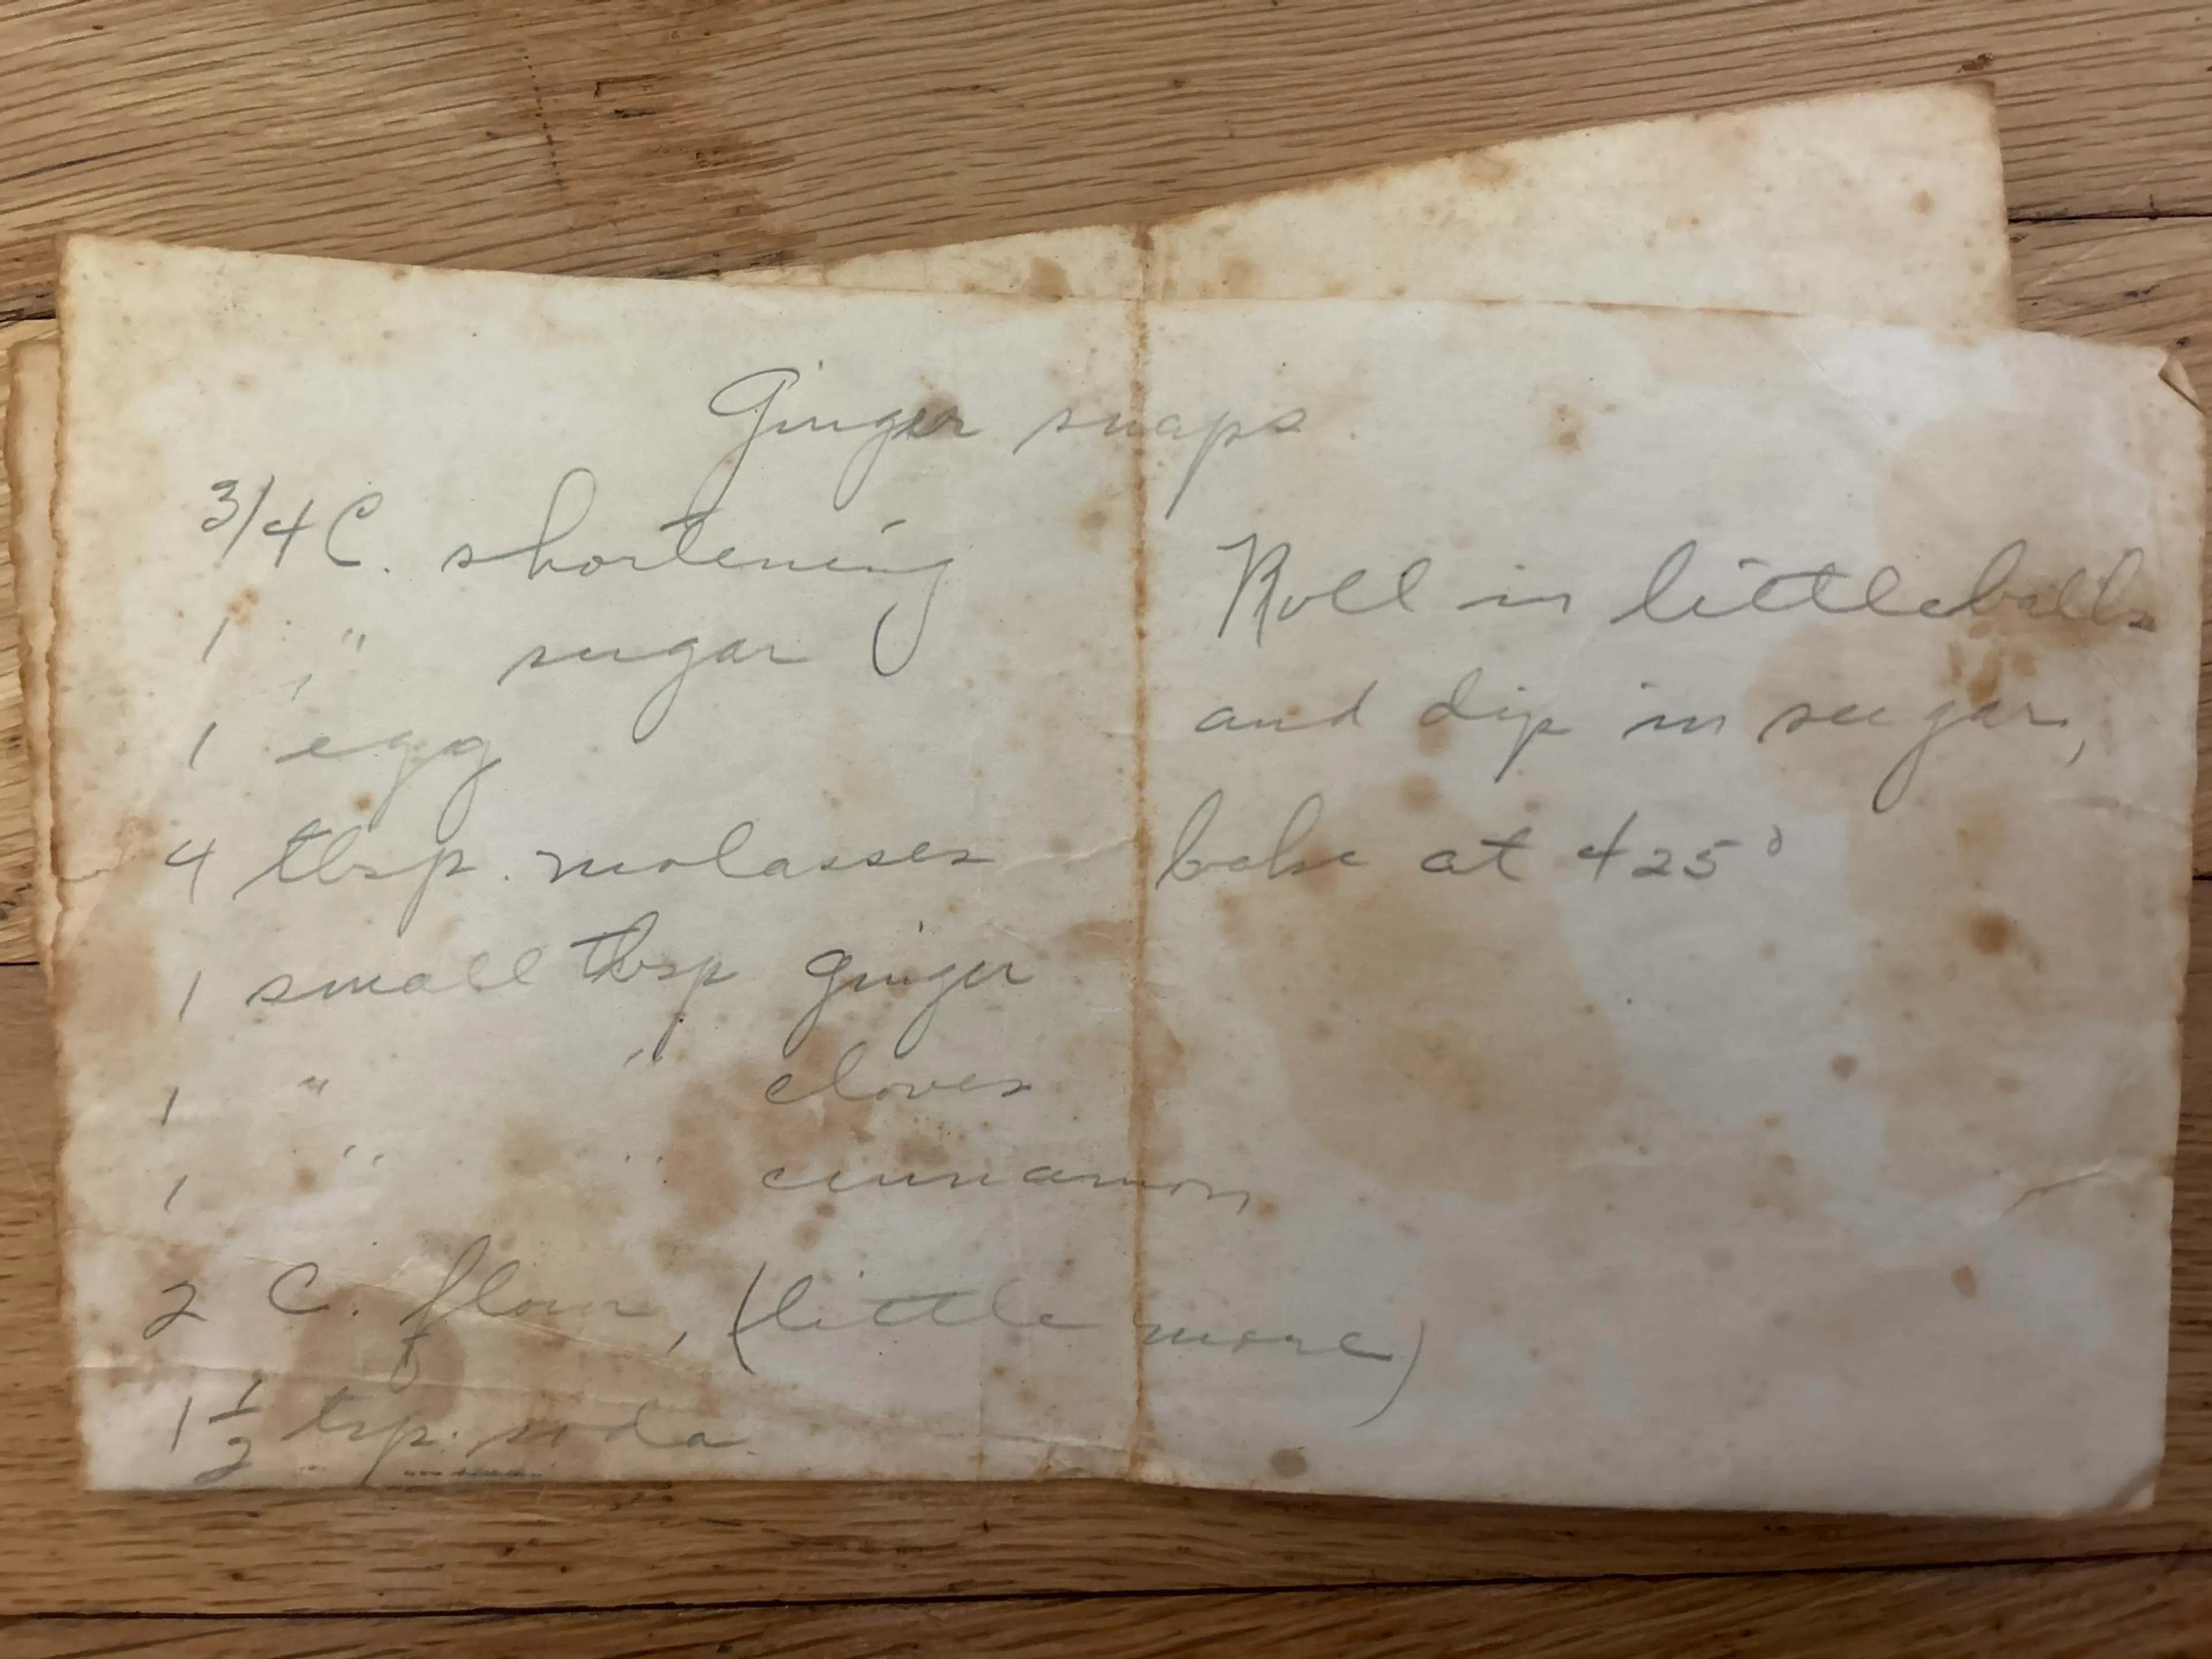 Ginger snaps.
3/4 C. shortening
1 " sugar
1 egg
4 tbsp. molasses
1 small tbsp ginger
1 " " cloves
1 " " cinnamon
2 C. flour, (little more)
1 1/2 tsp. soda.
Roll in little balls
and dip in sugar,
bake at 425°